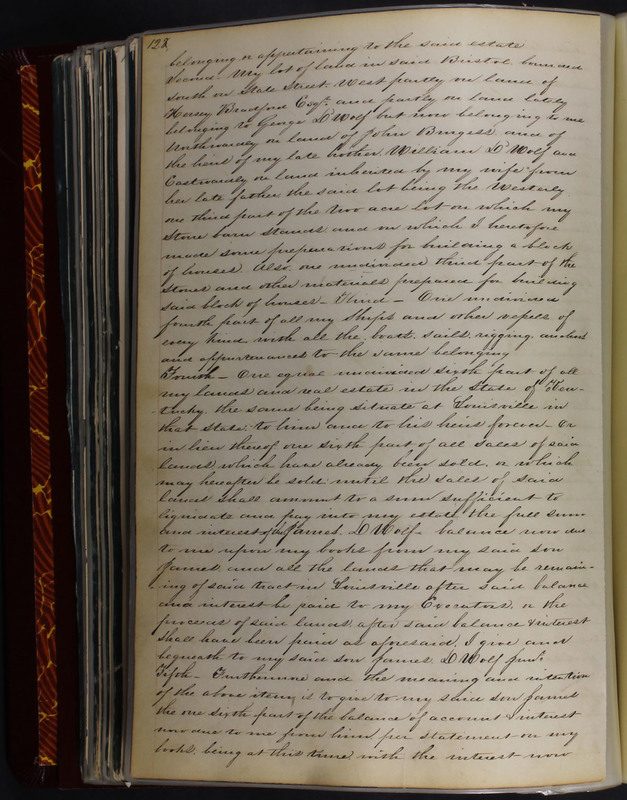 123
belonging or appertaining to the said estate
Second. My lot of land in said Bristol bounded
South on State Street, West partly on land of
Hersey Bradford Esqr. and partly on land lately
belonging to George D'Wolf but now belonging to me
Northwardly on land of John Burgess and of
the heirs of my late brother William D'Wolf and
Eastwardly on land inherited by my wife from
her late father the said lot being the Westerly
one third part of the two acre lot on which my
Stone barn stands and on which I heretofore
made some preparations for building a block
of houses. Also, one undivided third part of the
stones and other materials prepared for building
said block of houses - Third - One undivided
fourth part of all my Ships and other vessels of
every kind, with all the boats, sails, rigging, anchors
and appurtenances to the same belonging
Fourth - One equal undivided sixth part of all
my lands and real estate in the State of Ken-
-tucky, the same being situate at Louisville in
that State, to him and to his heirs forever - Or
in lieu thereof one sixth part of all sales of said
lands which have already been sold, or which
may hereafter be sold, until the sales of said
lands shall amount to a sum sufficient to
liquidate and pay into my estate the full sum
and interest of the James D'Wolf balance now due
to me upon my books from my said son
James, and all the lands that may be remain-
-ing of said tract in Louisville after said balance
and interest be paid to my Executors, or the
proceeds of said lands after said balance & interest
shall have been paid as aforesaid, I give and
bequeath to my said son James D'Wolf junr.
Fifth - Furthermore and the meaning and intention
of the above item, is to give to my said son James
the one sixth part of the balance of account & interest
now due to me from him per statement on my
books, being at this time with the interest now